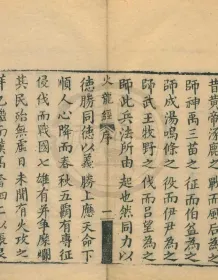 師神禹三苗之征而伯益為之
師成湯鳴條之役而伊尹為之
師武王牧野之伐而呂望為之
師此兵法所由起也然同力以
德勝同德以義勝上應天命下
火龍經 序 一
順人心降而春秋五霸有專征
侵伐而戰國七雄有并爭糜爛
其民殆無虛日未聞有火攻之